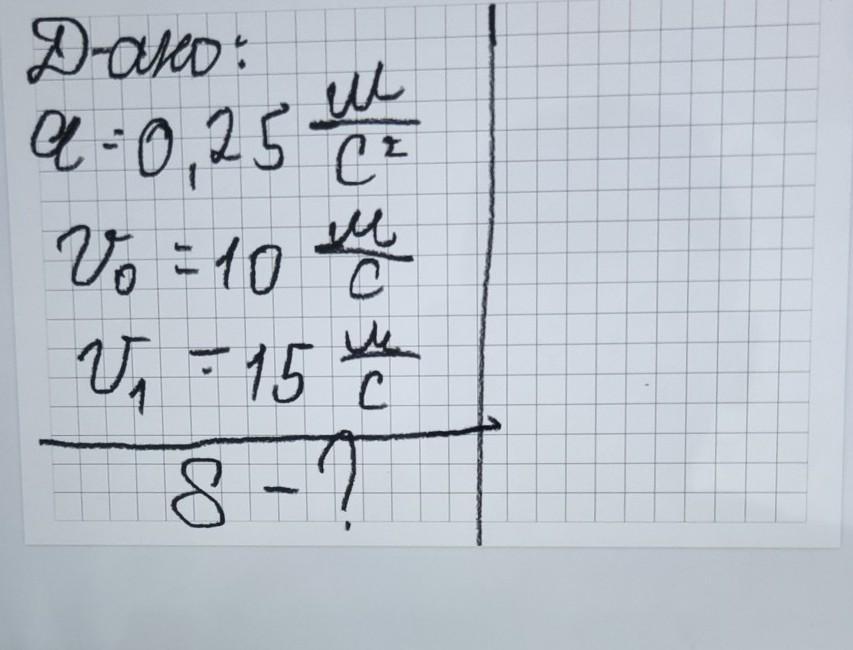 Д-ано:
a = 0,25 м/с²
v₀ = 10 м/с
v₁ = 15 м/с
S - ?